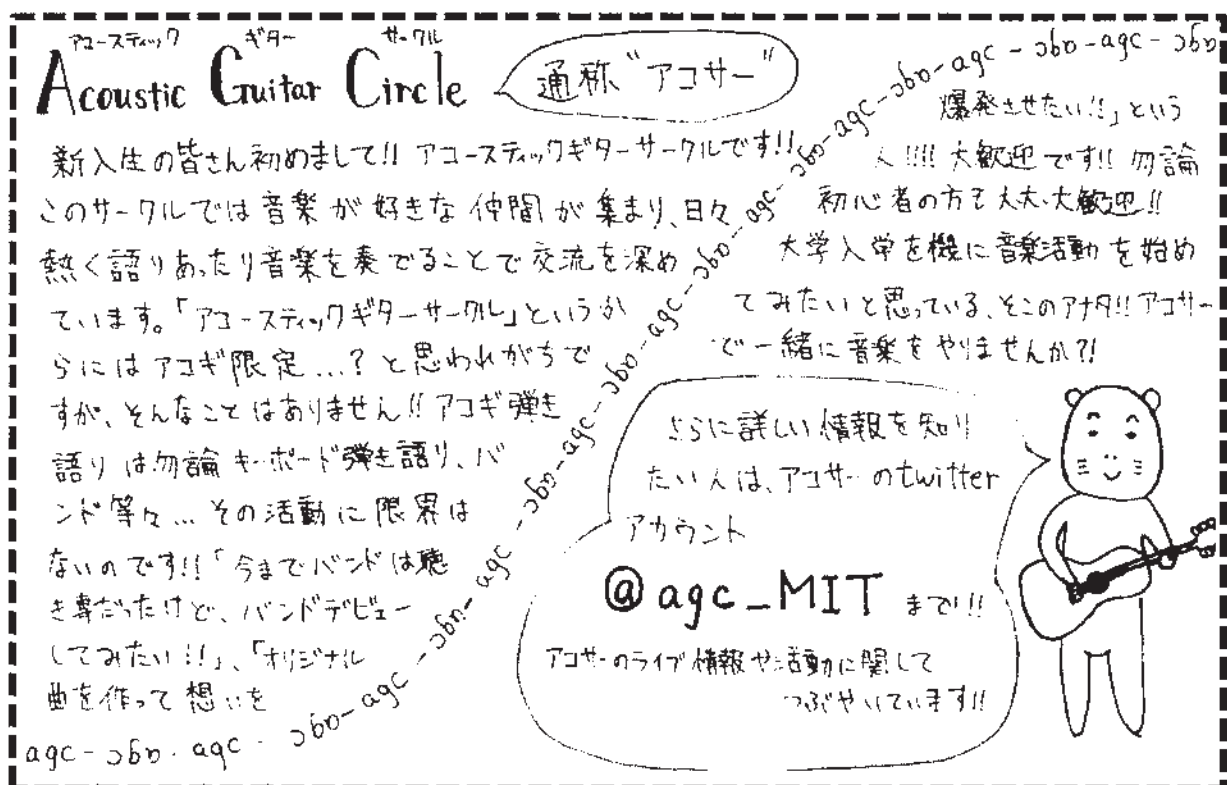 アコースティック ギター サークル
Acoustic Guitar Circle
通称“アコサー”
新入生の皆さん初めまして!! アコースティックギターサークルです!!
このサークルでは音楽が好きな仲間が集まり、日々
熱く語りあったり音楽を奏でることで交流を深め
ています。「アコースティックギターサークル」というか
らにはアコギ限定…?と思われがちで
すが、そんなことはありません!! アコギ弾き
語りは勿論キーボード弾き語り、バ
ンド等々…その活動に限界は
ないのです!!「今までバンドは聴
き専だったけど、バンドデビュー
してみたい!!」、「オリジナル
曲を作って想いを
agc-agc-agc-agc-agc-agc-agc-agc-agc-agc-agc-agc-agc-agc-agc-agc-agc-agc-agc-agc
爆発させたい!!」という
人!!!! 大歓迎です!! 勿論
初心者の方も大大大歓迎!!
大学入学を機に音楽活動を始め
てみたいと思っている、そこのアナタ!! アコサー
で一緒に音楽をやりませんか?!
さらに詳しい情報を知り
たい人は、アコサーのtwitter
アカウント
@agc_MIT まで!!!
アコサーのライブ情報や活動に関して
つぶやいています!!